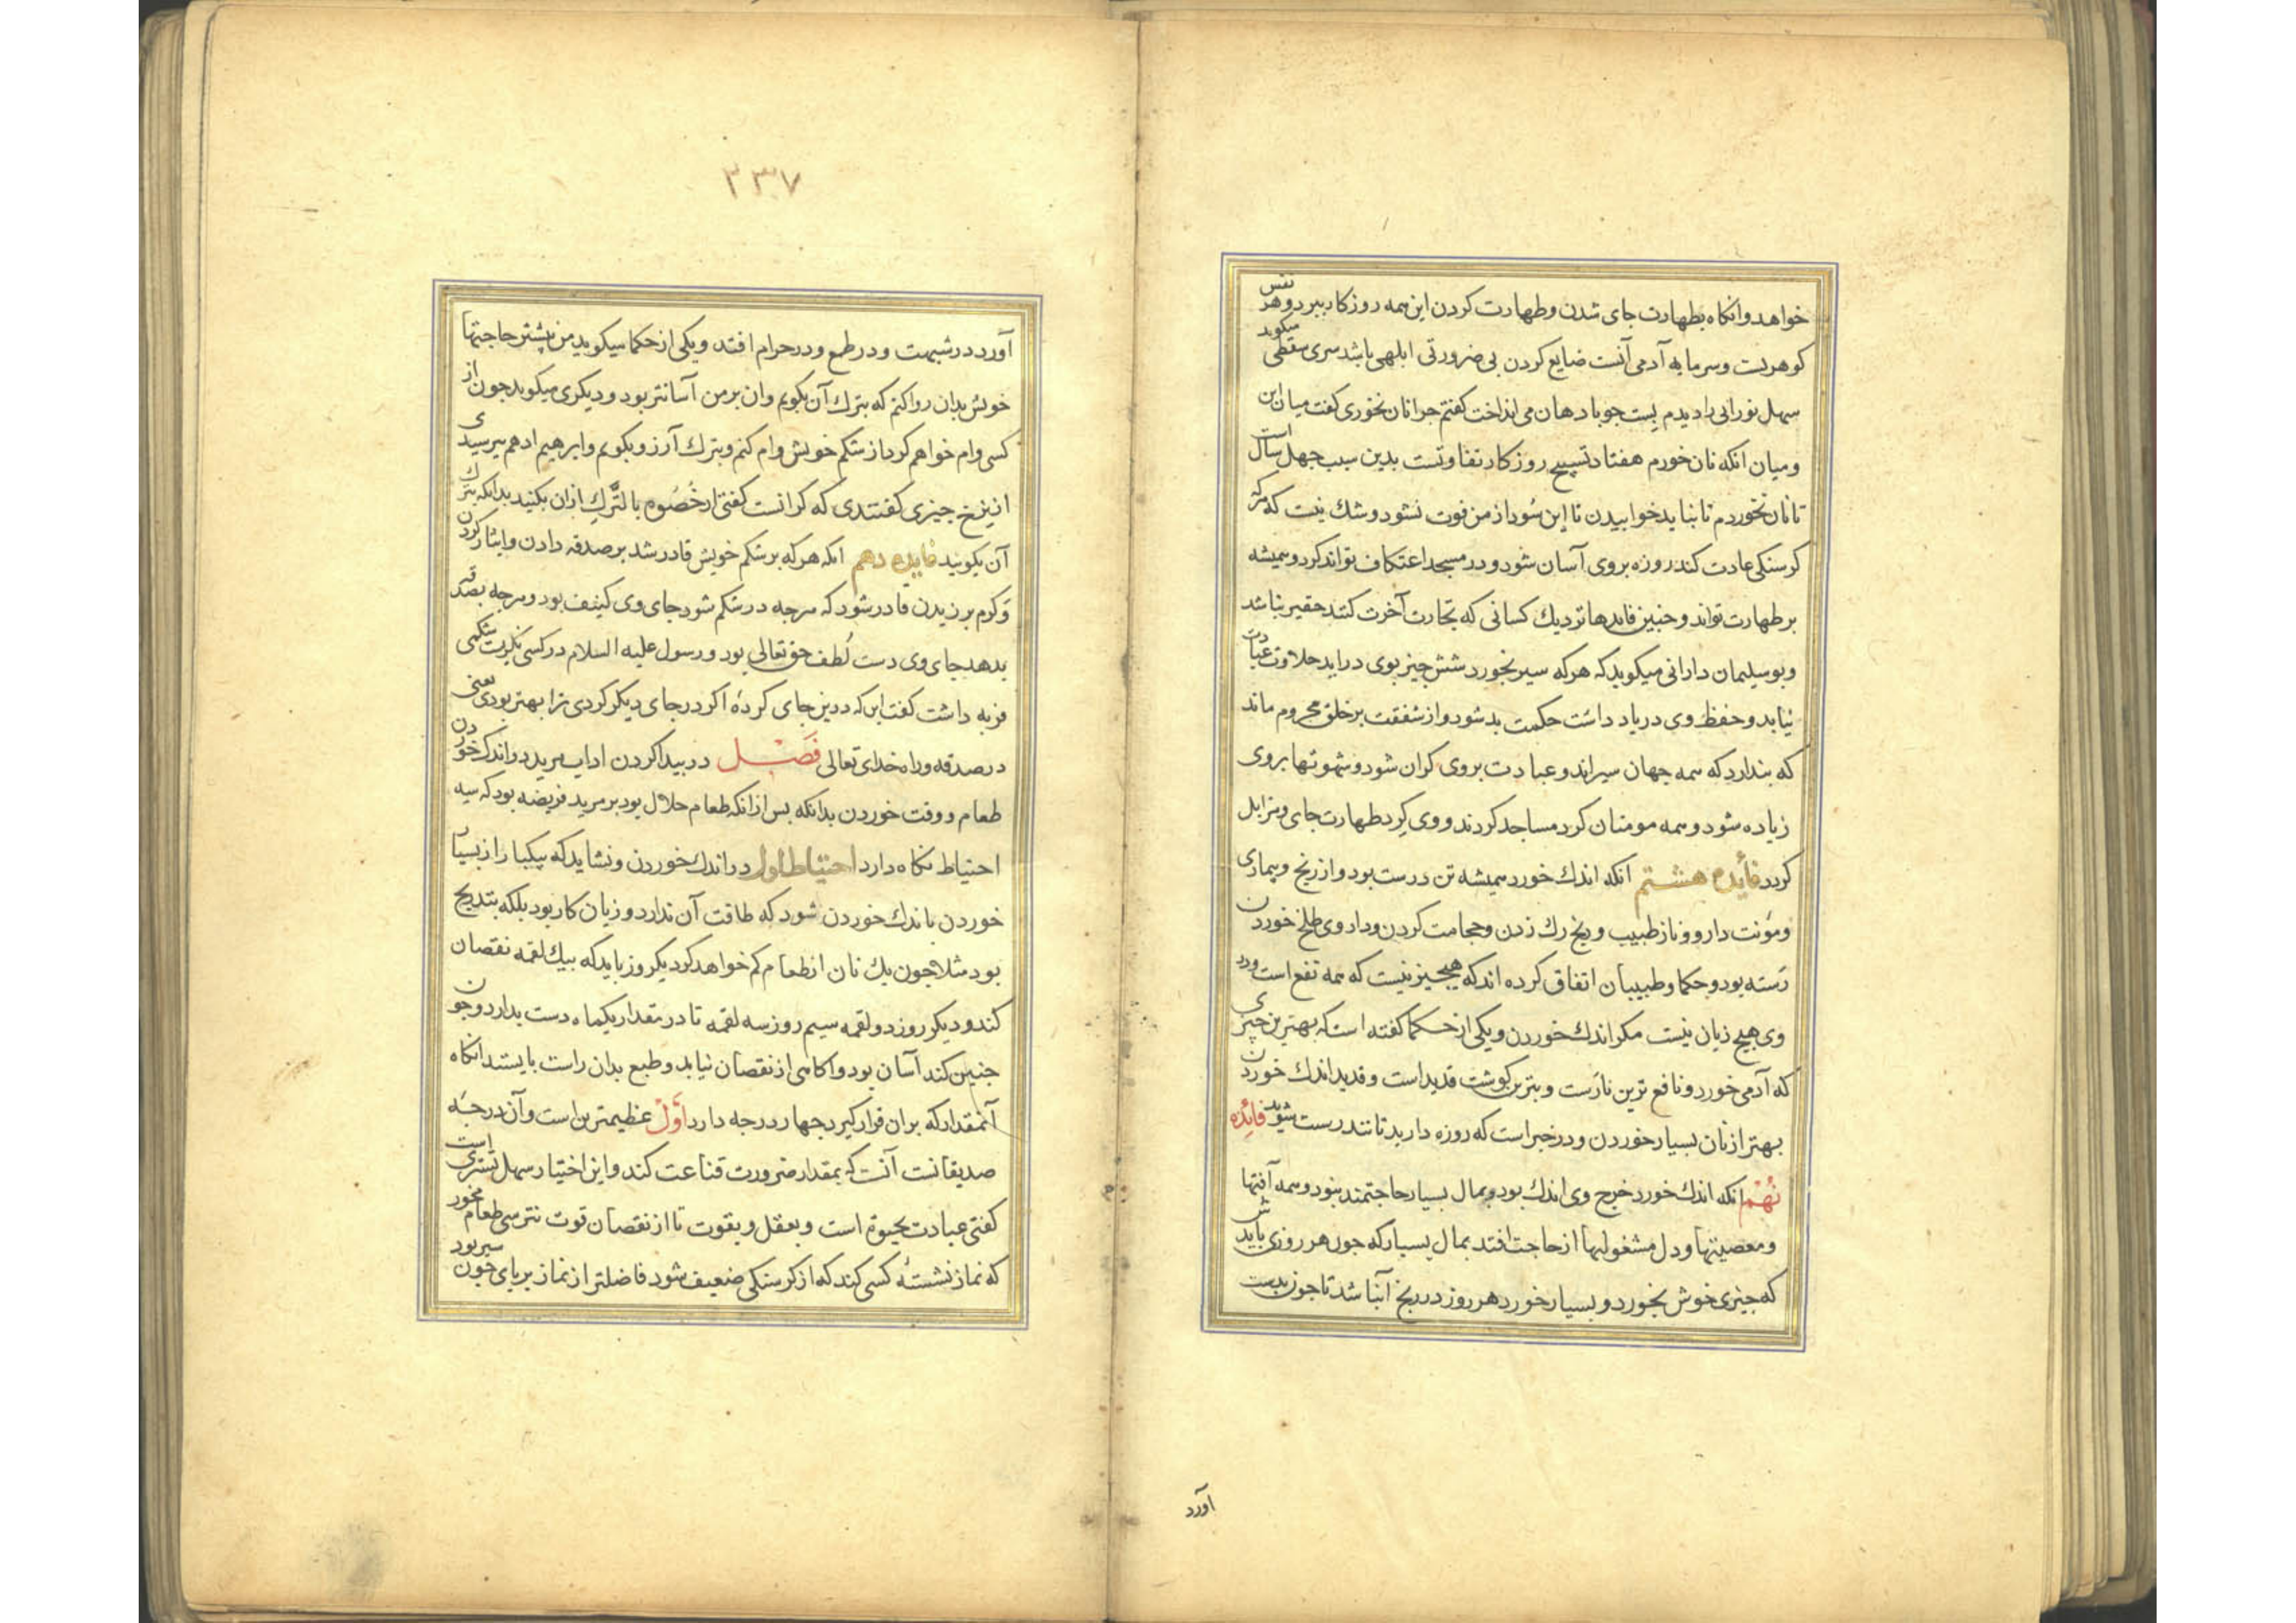 خواهد و انکاه بطهارت جای شدن و طهارت کردن این همه روزکار ببرد و هر نفس
کوهریست و سرمایه آدمی آنست ضایع کردن بی ضرورتی ابلهی باشد سری سقطی میکوید
سهل نورانی را دیدم پست جو با دهان می انداخت کفتم جرا نان نخوری کفت میان این
و میان انکه نان خورم هفتاد تسبیح روزکار تفاوتست بدین سبب جهل سال است
تا نان نخوردم تا نباید خوابیدن تا این سود از من فوت نشود و شک نیست که هرکه
کرسنکی عادت کند روزه بر وی آسان شود و در مسجد اعتکاف تواند کرد و همیشه
بر طهارت تواند و جنین فایدها نزدیک کسانی که تجارت آخرت کنند حقیر نباشد
و بو سلیمان دارانی میکوید که هرکه سیر بخورد شش چیز بوی دراید حلاوت عبادت
نیابد و حفظ وی در یاد داشت حکمت بد شود و از شفقت بر خلق محروم ماند
که بندارد که همه جهان سیراند و عبادت بروی کران شود و شهوتها بر وی
زیاده شود و همه مومنان کرد مساجد کردند و وی کرد طهارت جای و مزابل
کردد فایده هشتم انکه اندک خورد همیشه تن درست بود و از رنج و بیماری
و مؤنت دارو و ناز طبیب و رنج رک زدن و حجامت کردن و داروی طلخ خوردن
رسته بود و حکما و طبیبان اتفاق کرده اند که هیچیز نیست که همه نفع است و در
وی هیچ زیان نیست مکر اندک خوردن و یکی از حکما کفته است که بهترین چیزی
که آدمی خورد و نافع ترین نارست و بتزین کوشت قدید است و قدید اندک خوردن
بهتر از نان بسیار خوردن و در خبر است که روزه دارید تا تندرست شوید فائده
نهم انکه اندک خورد خرج وی اندک بود و بمال بسیار حاجتمند نبود و همه آفتها
و معصیتها و دل مشغولیها از حاجت افتد بمال بسیار که جون هر روزی بایدش
که چیزی خوش بخورد و بسیار خورد هر روز در رنج آنباشد تا جون بدست
آورد
۲۳۷
آورد در شبهت و در طمع و در حرام افتد و یکی از حکما میکوید من بیشتر حاجتها
خویش بدان روا کنم که بترک آن بکویم و ان بر من آسانتر بود و دیکری میکوید جون از
کسی وام خواهم کرد از شکم خویش وام کنم و بترک آرزو بکویم و ابرهیم ادهم پرسیدی
از نرخ چیزی کفتندی که کرانست کفتی ارخصوه بالترک ارزان بکنید بدانکه بترک
آن بکویید فایده دهم انکه هرکه بر شکم خویش قادر شد بر صدقه دادن و ایثار کردن
و کرم برزیدن قادر شود که هرچه در شکم شود جای وی کنیف بود و هرچه بصدقه
بدهد جای وی دست لطف حق تعالی بود و رسول علیه السلام در کسی نکریست شکمی
فربه داشت کفت این که درین جای کرده اکر در جای دیکر کردی ترا بهتر بودی یعنی
در صدقه و راه خدای تعالی فصل در پیدا کردن اداب مرید در اندک خوردن
طعام و وقت خوردن بدانکه بس از انکه طعام حلال بود بر مرید فریضه بود که سه
احتیاط نکاه دارد احتیاط اول در اندک خوردن و نشاید که بیکبار از بسیار
خوردن باندک خوردن شود که طاقت آن ندارد و زیان کار بود بلکه بتدریج
بود مثلا جون یک نان از طعام کم خواهد کرد یکروز باید که بیک لقمه نقصان
کند و دیکر روز دو لقمه سیم روز سه لقمه تا در مقدار یکماه دست بدارد و جون
جنین کند آسان بود و اکاهی از نقصان نیابد و طبع بدان راست بایستد انکاه
آنمقدار که بران قرار کیرد جهار درجه دارد اول عظیمترین است و آن درجه
صدیقانست آنست که بمقدار ضرورت قناعت کند و این اختیار سهل تستری است
کفتی عبادت بحیوة است و بعقل و بقوت تا از نقصان قوت نترسی طعام مخور
که نماز نشسته کسی کند که از کرسنکی ضعیف شود فاضلتر از نماز بر پای جون سیر بود